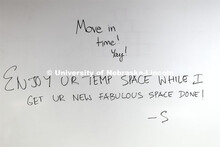 Move in
time!
Yay!
ENJOY UR TEMP SPACE WHILE I
© University of Nebraska-Lincoln
GET UR NEW FABULOUS SPACE DONE!
-S